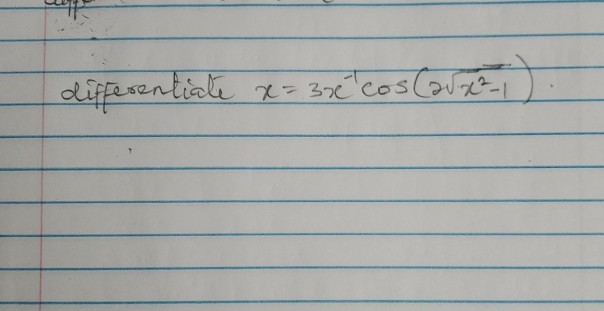 differentiate x = 3x⁻¹cos(2√x²-1).